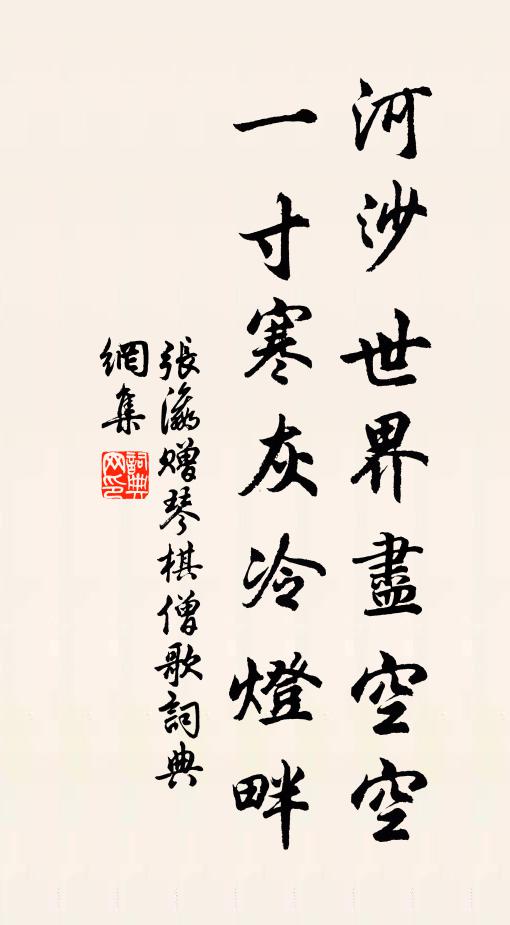 河沙世界盡空空
一寸寒灰冷燈畔
張瀛贈琴棋僧歌詞典
網集
詞典
网印